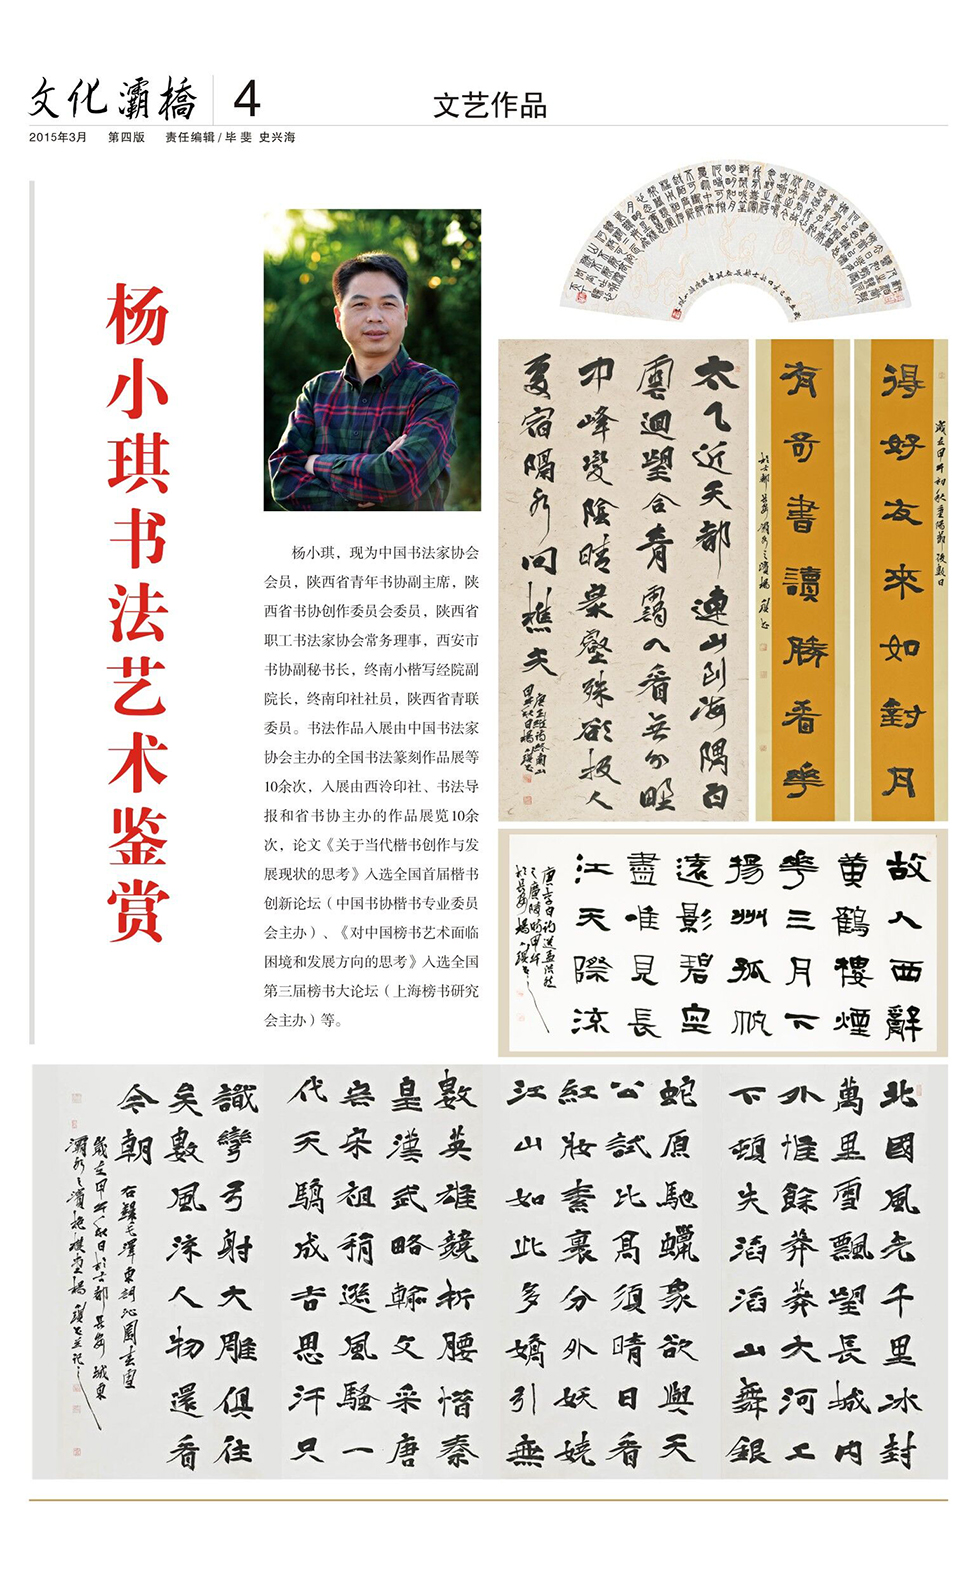 文化灞橋
4
文艺作品
2015年3月 第四版 责任编辑/毕 斐 史兴海
杨小琪书法艺术鉴赏
杨小琪，现为中国书法家协会
会员，陕西省青年书协副主席，陕
西省书协创作委员会委员，陕西省
职工书法家协会常务理事，西安市
书协副秘书长，终南小楷写经院副
院长，终南印社社员，陕西省青联
委员。书法作品入展由中国书法家
协会主办的全国书法篆刻作品展等
10余次，入展由西泠印社、书法导
报和省书协主办的作品展览10余
次，论文《关于当代楷书创作与发
展现状的思考》入选全国首届楷书
创新论坛（中国书协楷书专业委员
会主办）、《对中国榜书艺术面临
困境和发展方向的思考》入选全国
第三届榜书大论坛（上海榜书研究
会主办）等。
太乙近天都連山到海隅白
雲迴望合青靄入看無分野
中峰變陰晴衆壑殊欲投人
處宿隔水問樵夫
得好友來如對月
歲在甲午初秋重陽節後數日
有奇書讀勝看華
故人西辭
黄鶴樓煙
華三月下
揚州孤帆
遠影碧空
盡唯見長
江天際流
北國風光千里冰封
萬里雪飄望長城内
外惟餘莽莽大河上
下頓失滔滔山舞銀
蛇原馳蠟象欲與天
公試比髙須晴日看
紅妝素裹分外妖嬈
江山如此多嬌引無
數英雄競折腰惜秦
皇漢武略輸文采唐
宗宋祖稍遜風騷一
代天驕成吉思汗只
識彎弓射大雕俱往
矣數風流人物還看
今朝
右録毛澤東詞沁園春雪